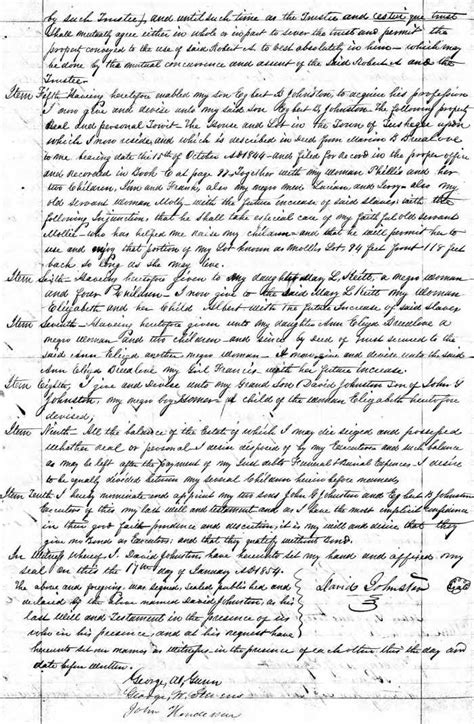 by such Trustee, and until such time as the Trustee and cestui que trust
Shall mutually agree either in whole or in part to sever the trust and permit the
property conveyed to the use of said Robert A to vest absolutely in him – which may
be done by the mutual concurrence and assent of the Said Robert A and the
Trustee.
Item Fifth Having heretofore enabled my son Egbert B Johnston, to acquire his profession
I now give and devise unto my said son Egbert B Johnston The following property
Real and personal Towit – The House and Lot in the Town of Tuskegee upon
which I now reside, and which is described in deed from Marion B Breedlove
to me bearing date this of October AD 1844 – and filed for record in the proper office
and recorded in Book at page 99 Together with my woman Phillis and her
two Children, and Frank, also my negro men Lucian and – also my
old Servant woman Molly – with the future increase of said slaves with the
following Injunction, that he shall take especial care of my faithful old Servant
Mollie – who has helped me raise my children – and that he will permit her to
use and enjoy that portion of my Lot known as Mollies Lot 94 feet front 118 feet
back so long as she may live.
Item Sixth Having heretofore given to my daughter Mary L Keitt, a negro woman
and four Children – I now give to the said Mary L Keitt my Woman
Elizabeth and her Child Albert with the future Increase of said Slaves
Item Seventh – Having heretofore given unto my daughter Ann Eliza Breedlove a
negro woman and two children – and since by deed of trust secured to the
said Ann Eliza another negro Woman – I now give and devise unto the said
Ann Eliza Breedlove my Girl Francis with her future Increase.
Item Eighth, I give and Devise unto my Grand Son David Johnston Son of John G
Johnston, my negro boy Homer – A child of the woman Elizabeth heretofore
devised,
Item Ninth – All the balance of the Estate of which I may die seized and possessed
whether real or personal I desire disposed of by my Executors and such balance
as may be left after the payment of my Just debts Funeral Expences, I desire
to be equally divided between my several Children herein before named,
Item Tenth I hereby nominate and appoint my two sons John G Johnston and Egbert B Johnston
Executors of this my last will and testament and as I have the most implicit confidence
in their good faith prudence and discretion, it is my will and desire that they
give no Bonds as Executors, and that they qualify without bond.
In Witness whereof I, David Johnston have hereunto set my hand and affixed my
seal on this the 17th day of January AD 1854.
The above and foregoing was signed, sealed published and
declared by the above named David Johnston, as his
last Will and Testament in the presence of us
who in his presence, and at his request have
David Johnston
Seal
hereunto set our names as witnesses in the presence of each other this the day and
date before written.
George W Gunn
George W. Stevens
John Henderson